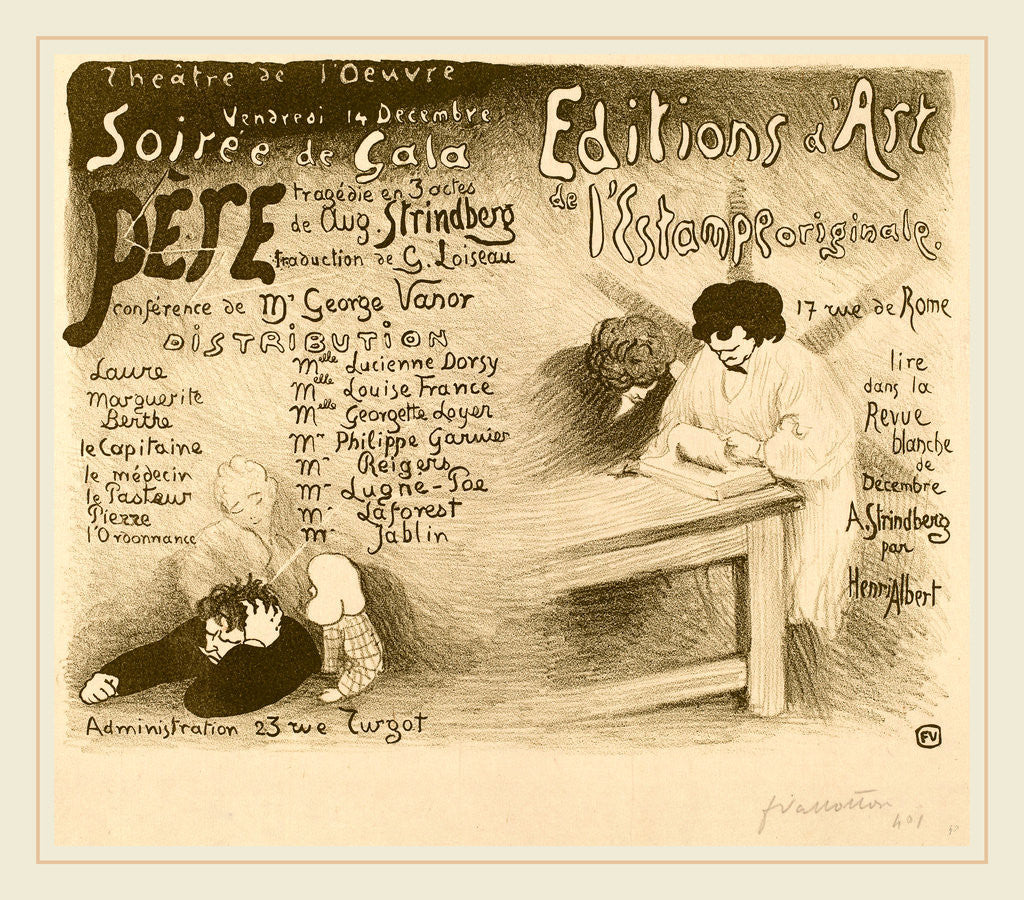 Theâtre de l'Oeuvre
Vendredi 14 Decembre
Soirée de Gala
PÈRE
tragédie en 3 actes
de Aug. Strindberg
traduction de G. Loiseau
conférence de Mr George Vanor
DISTRIBUTION
Laure Melle Lucienne Dorsy
Marguerite Melle Louise France
Berthe Melle Georgette Loyer
le Capitaine Mr Philippe Garnier
le médecin Mr Reigers
le Pasteur Mr Lugné-Poe
Pierre Mr Laforest
l'Ordonnance Mr Jablin
Administration 23 rue Turgot
Editions d'Art
de l'Estampe originale.
17 rue de Rome
lire
dans la
Revue
blanche
de
Décembre
A. Strindberg
par
Henri Albert
FV
fVallotton